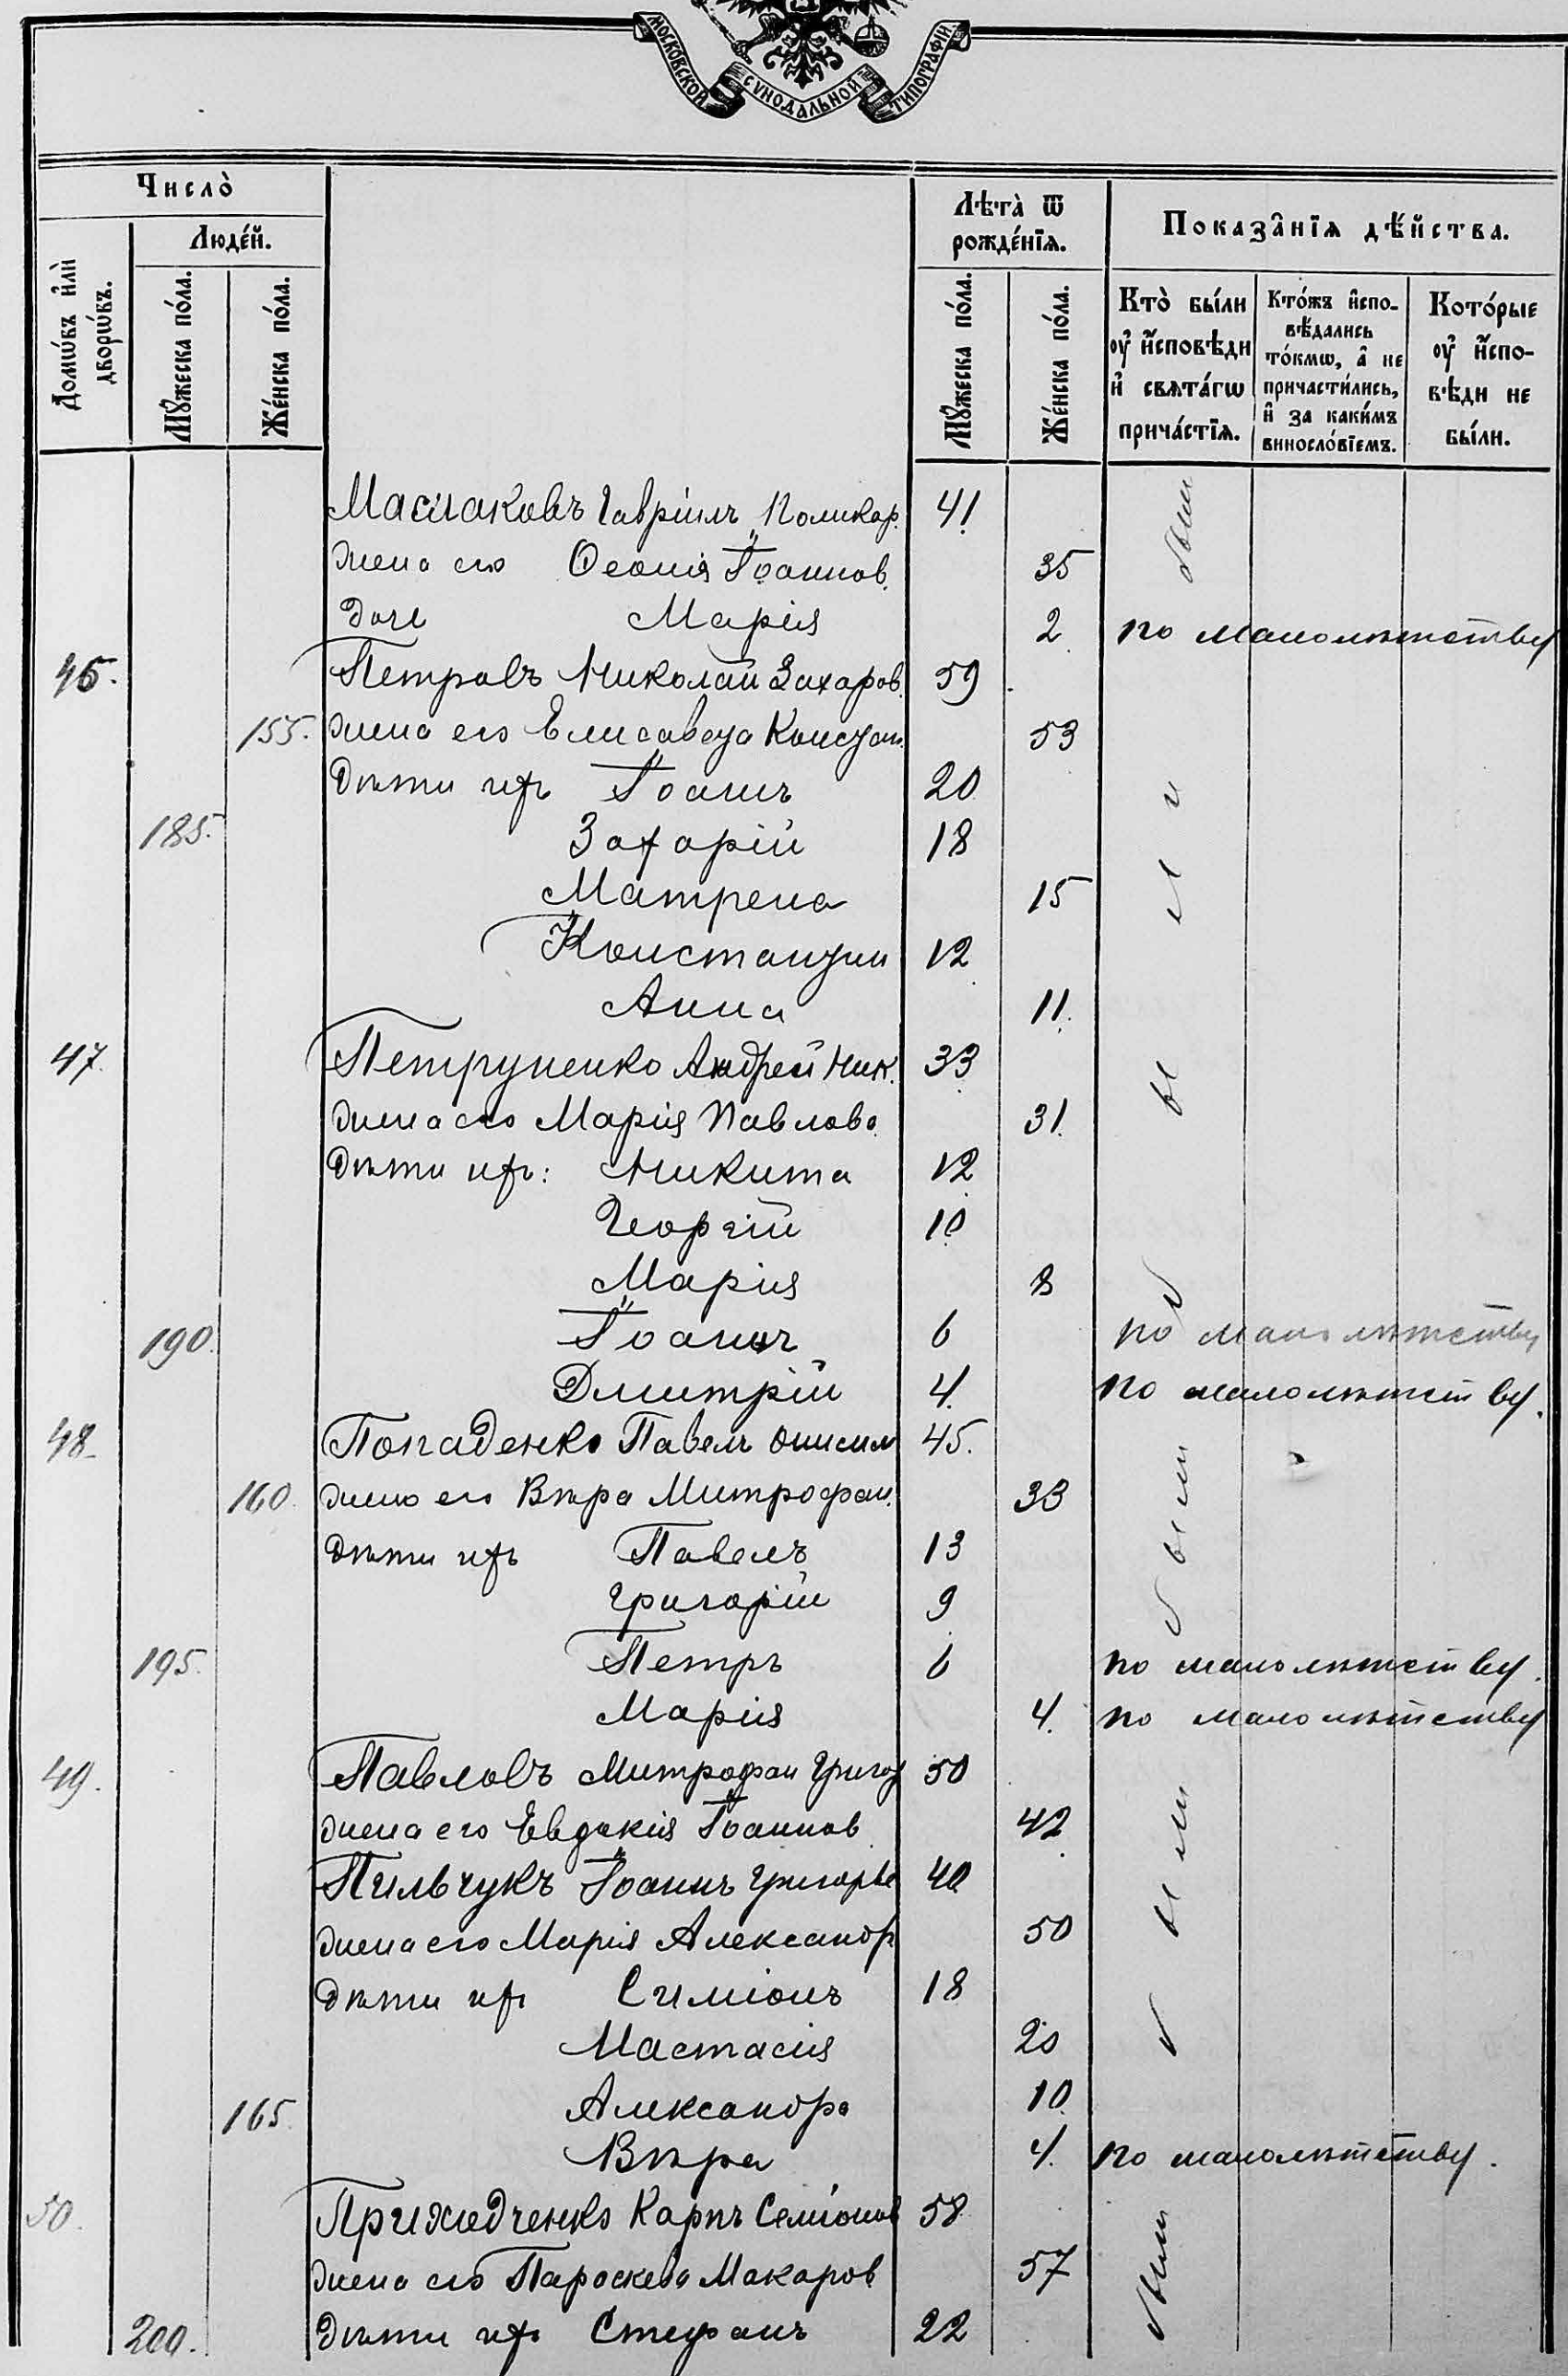 МОСКОВСКОЙ СѴНОДАЛЬНОЙ ТИПОГРАФІИ
Число̀
Людéй.
Домѡ́въ и҆лѝ дворѡ́въ.
Мꙋ́жеска по́ла.
Же́нска по́ла.
Лѣ́та̀ ѿ рожде́нїѧ.
Мꙋ́жеска по́ла.
Же́нска по́ла.
Показа̑нїѧ дѣ́йства.
Кто̀ бы́ли ᲂу҆ и҆́сповѣди и҆ свѧта́гѡ прича́стїѧ.
Кто́жъ и҆спо-вѣ́дались то́кмѡ, а҆ не причасти́лись, и҆ за каки́мъ виносло́вїемъ.
Кото́рые ᲂу҆ и҆́спо-вѣди не бы́ли.
Маслаковъ Гавріилъ Поликар. 41 были
жена его Ѳеонія Іоаннов. 35
дочь Марія 2 по малолѣтству
46. Петровъ Николай Захаров. 59
155. жена его Елисавета Констан. 53
дѣти ихъ Іоаннъ 20 были
185. Захарій 18
Матрена 15
Константин 12
Анна 11.
47. Петруненко Андрей Ник. 33
жена его Марія Павлова 31.
дѣти ихъ: Никита 12
Георгій 10
Марія 8
190. Іоаннъ 6 по малолѣтству
Дмитрій 4. по малолѣтству.
48. Попаденко Павелъ Онисим 45.
160. жена его Вѣра Митрофан. 33 были
дѣти ихъ Павелъ 13
Григорій 9
195. Петръ 6 по малолѣтству.
Марія 4. по малолѣтству
49. Павловъ Митрофан Григор 50
жена его Евдокія Іоаннов 42 были
Пильчукъ Іоаннъ Григорье 40
жена его Марія Александр 50
дѣти ихъ Симіонъ 18
Настасія 20
165. Александра 10
Вѣра 4. по малолѣтству.
50. Приходченко Карпъ Семіонов 58
жена его Параскева Макаров 57 были
200. дѣти ихъ Стефанъ 22